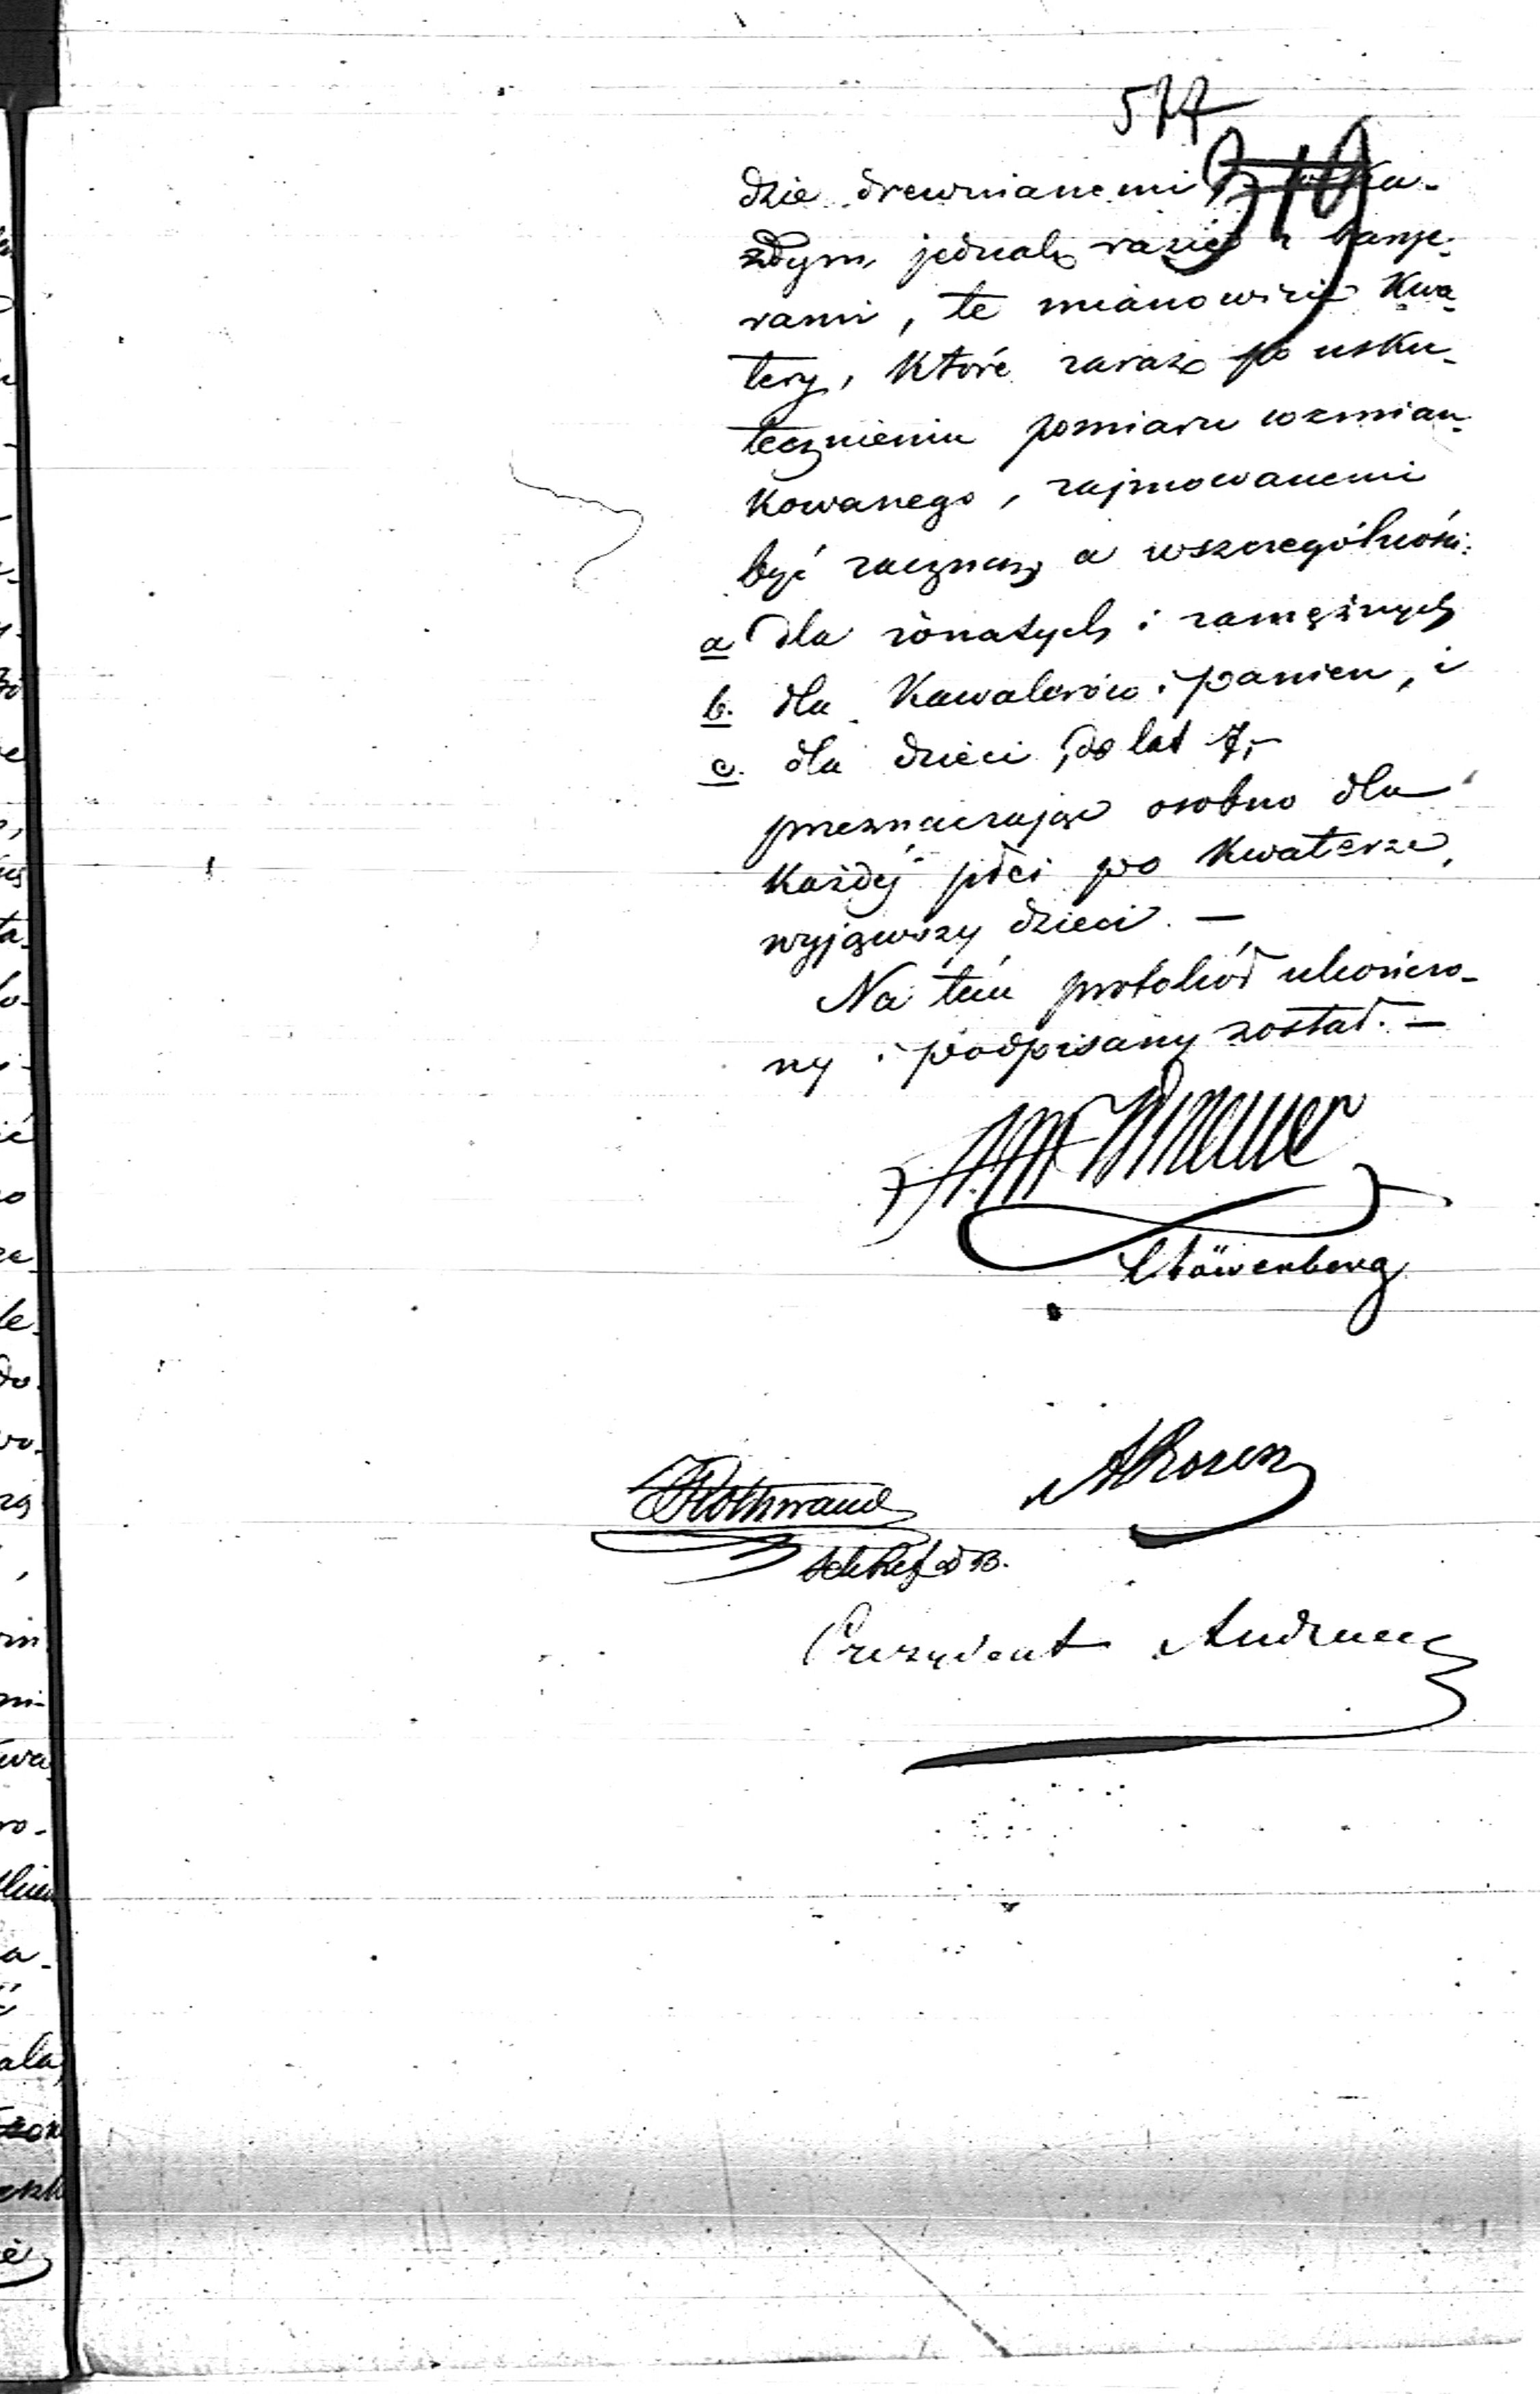 577
319
dzie drewnianemi w ka-
żdym jednak razie z barye-
rami, te mianowicie Kwa-
tery, które zaraz po usku-
tecznieniu pomiaru wzmian-
kowanego, zajmowanemi
być zaczną, a wszczególności:
a dla żonatych i zamężnych
b. dla Kawalerów i panien, i
c. dla dzieci do lat 7,-
przeznaczając osobno dla
każdéj płci po Kwaterze,
wyjąwszy dzieci. —
Na tém protokół ukończo-
ny i podpisany został. —
Löwenberg
Rothwand
ARosen
Prezydent